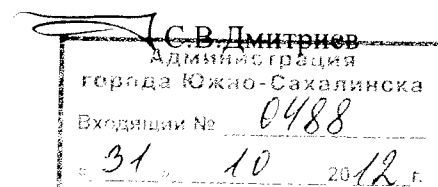 С.В.Дмитриев
Администрация
города Южно-Сахалинска
Входящий № 0488
« 31 » 10 2012 г.